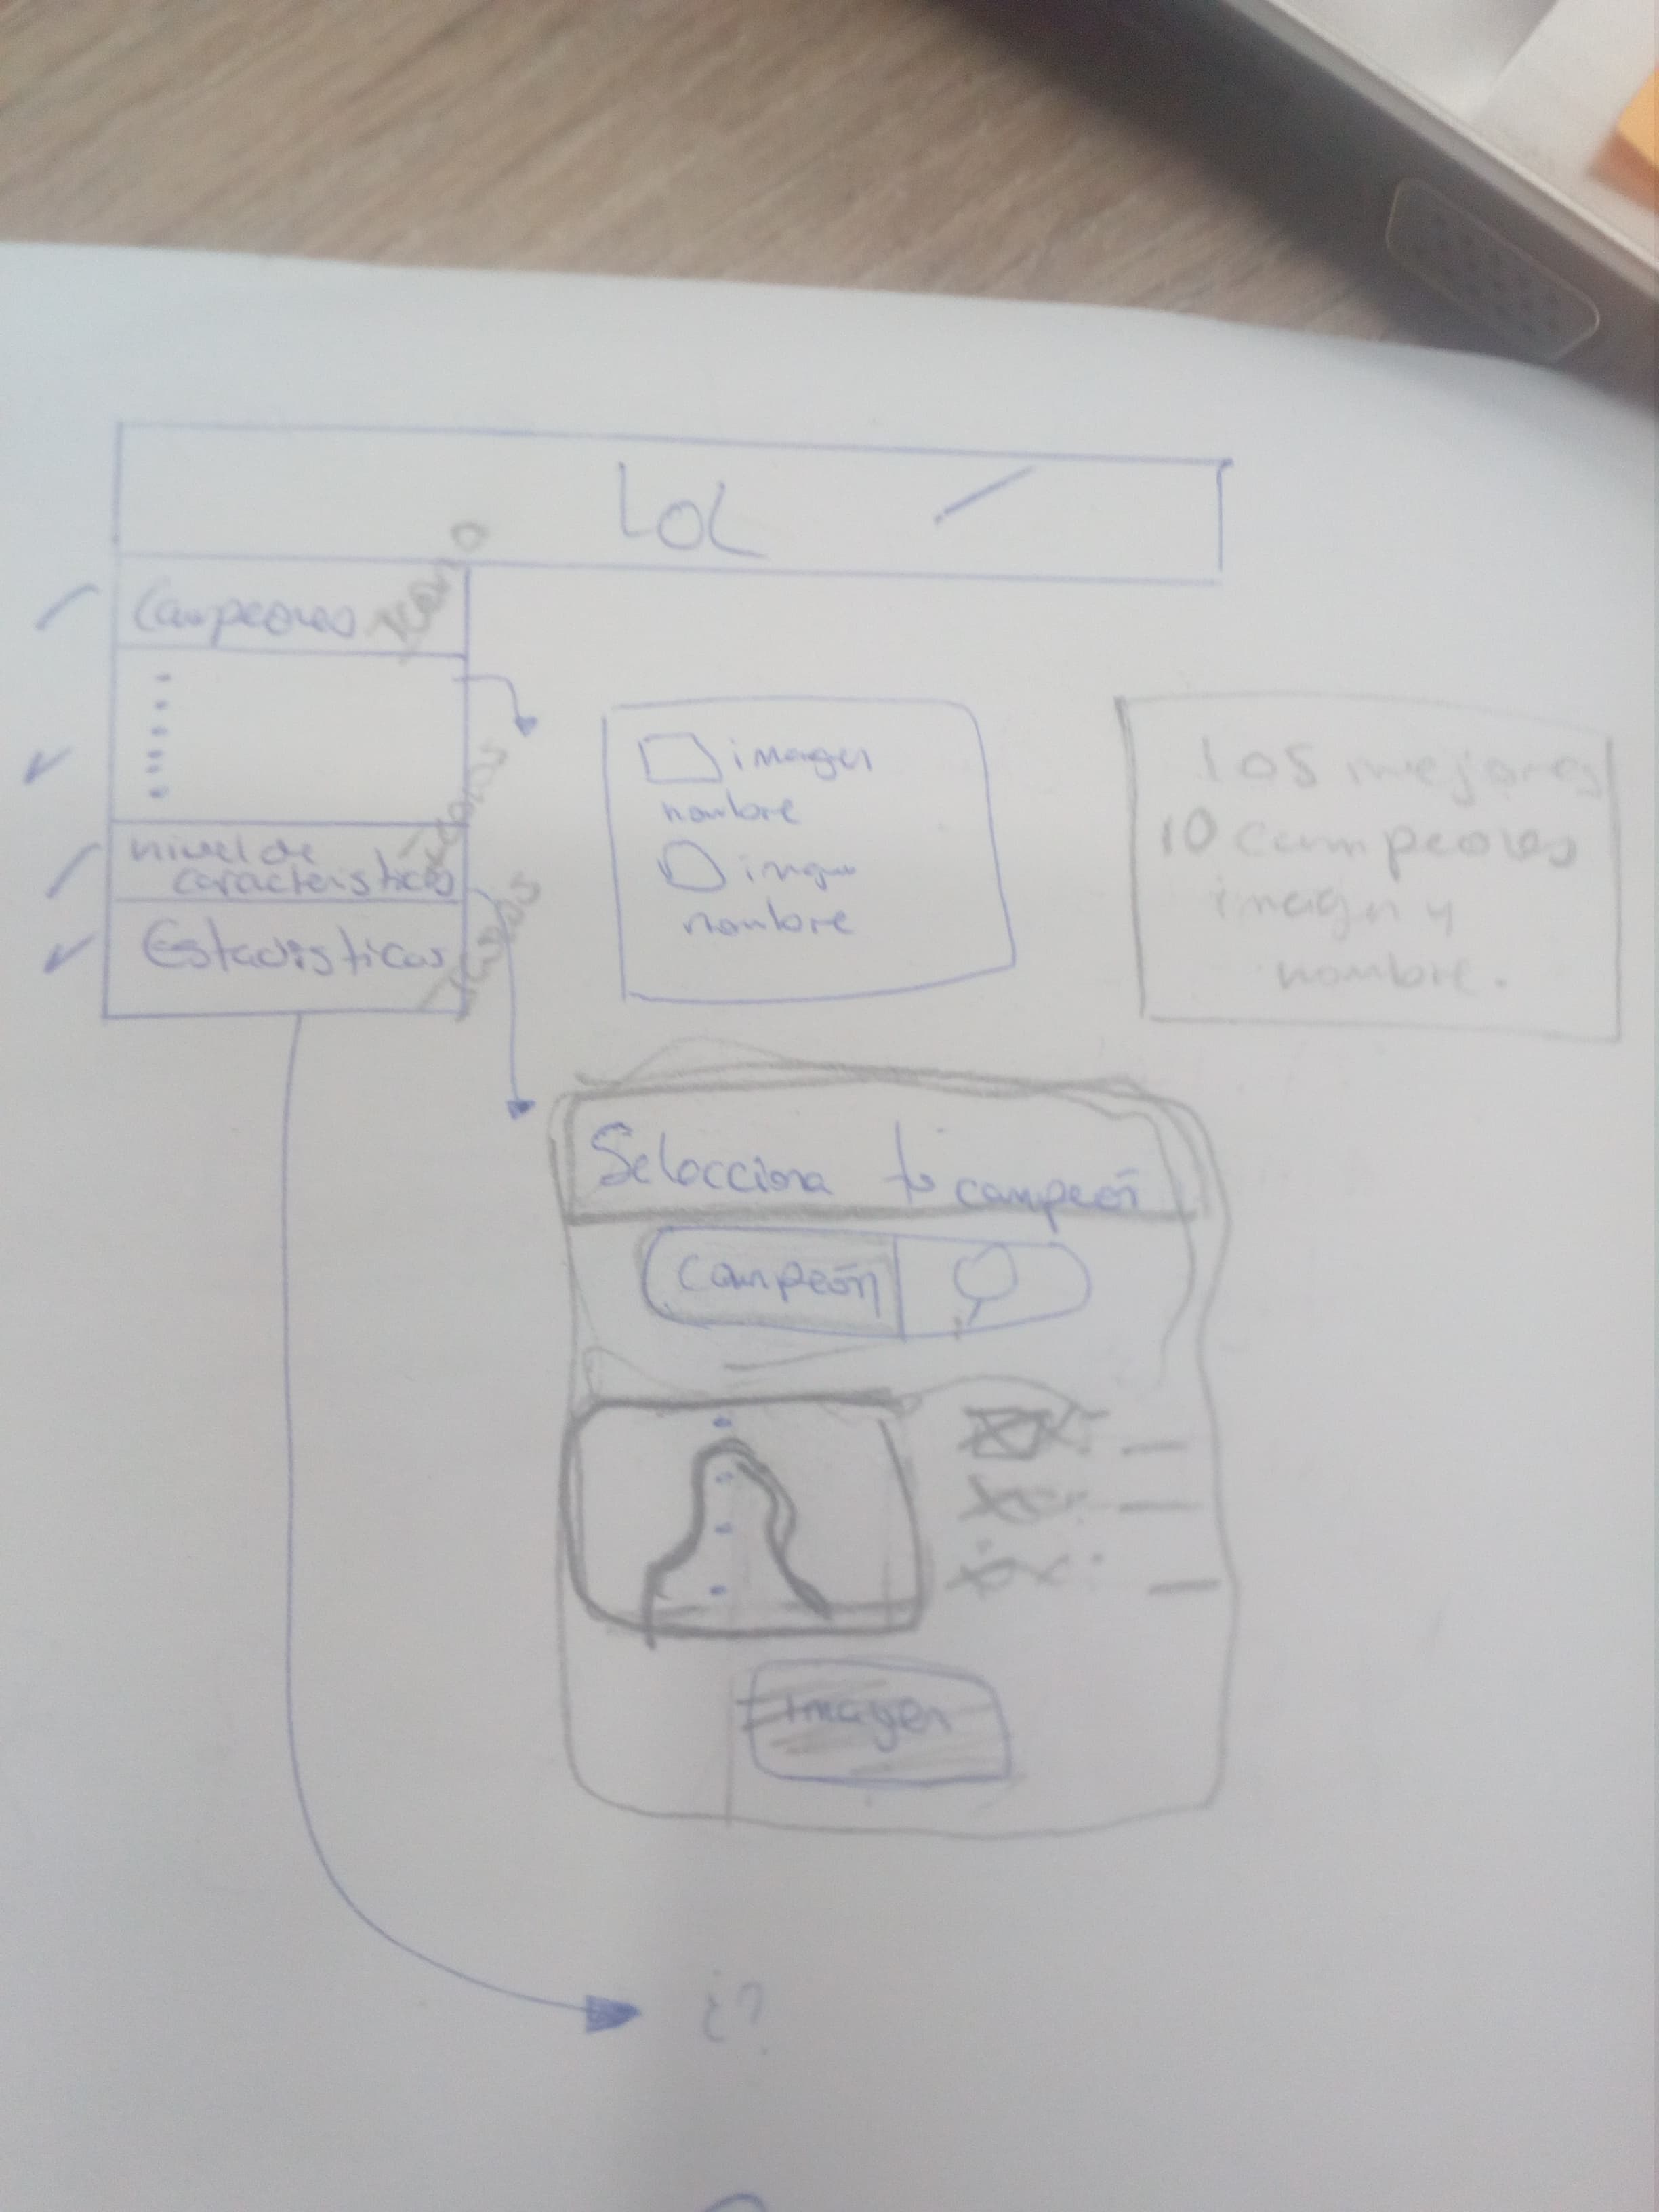 LOL
Campeones icono
nivel de
características iconos
Estadísticas iconos
imagen
nombre
nombre
los mejores
10 campeones
imagen y
nombre.
Selecciona tu campeón
Campeón
imagen
¿?